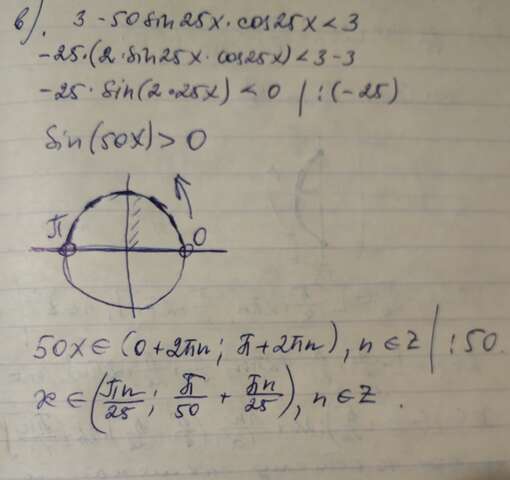 в). 3 - 50 sin25x · cos25x < 3
-25·(2·sin25x · cos25x) < 3-3
-25 · sin(2·25x) < 0 / : (-25)
sin(50x) > 0
π 0
50x ∈ (0+2πn; π+2πn), n ∈ Z / : 50
x ∈ (πn/25; π/50 + πn/25), n ∈ Z.